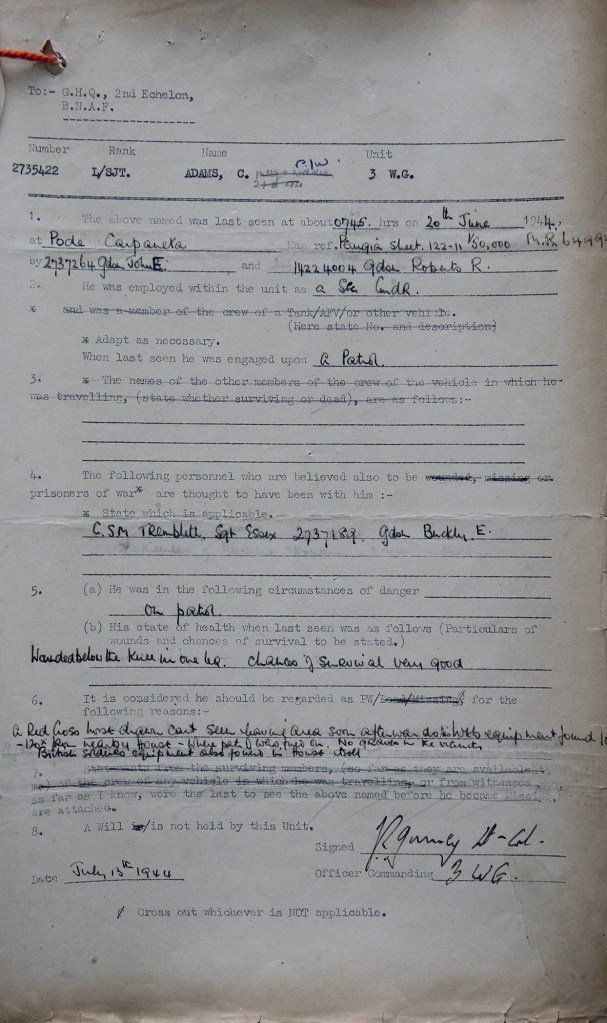 To:- G.H.Q., 2nd Echelon,
B.N.A.F.
Number Rank Name Unit
P/W.
2735422 L/SJT. ADAMS, C. 3 W.G.
1. The above named was last seen at about 0745 hrs on 20th June 1944,
at Poda Carpaneta Map ref. Perugia Sheet. 122-11 1/50,000 M.R. 6499
by 2737264 Gdsn John E. and 14224004 Gdsn Roberts R.
2. He was employed within the unit as a Sec Cmdr.
* and was a member of the crew of a Tank/AFV/or other vehicle.
(Here state No. and description)
* Adapt as necessary.
When last seen he was engaged upon a Patrol.
3. * The names of the other members of the crew of the vehicle in which he
was travelling, (state whether surviving or dead), are as follows:-
4. The following personnel who are believed also to be wounded, missing or
prisoners of war* are thought to have been with him :-
* State which is applicable.
C.S.M Tremblett, Sgt Essex 2737189 Gdsn Buckley E.
5. (a) He was in the following circumstances of danger
on patrol
(b) His state of health when last seen was as follows (Particulars of
wounds and chances of survival to be stated.)
Wounded below the knee in one leg. chances of survival very good
6. It is considered he should be regarded as PW/Dead/Missing for the
following reasons:-
a Red Cross horse drawn cart seen leaving area soon afterwards Web equipment found
nearby house - where patrol was fired on. No graves in the vicinity
British soldiers equipment also found in house itself
7. Statements from the surviving members, (so far as they are available
of the crew of any vehicle in which he was travelling, or from witnesses who,
as far as I know, were the last to see the above named before he became missing,
are attached.
8. A Will is/is not held by this Unit.
Signed J R Gurney Lt-Col.
Date July 13th 1944 Officer Commanding 3 WG.
Cross out whichever is NOT applicable.